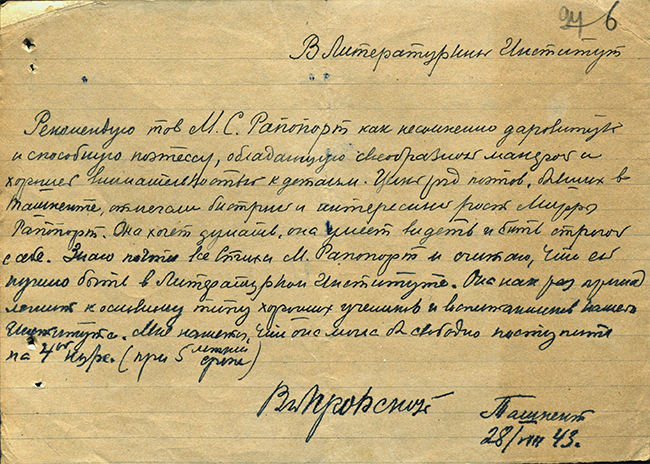 94 6
В Литературный Институт
Рекомендую тов М. С. Рапопорт как несомненно даровитую
и способную поэтессу, обладающую своеобразной манерой и
хорошей внимательностью к деталям. Целый ряд поэтов, бывших в
Ташкенте, отмечали быстрый и интересный рост Мирры
Рапопорт. Она хочет думать, она умеет видеть и быть строгой
к себе. Знаю почти все стихи М. Рапопорт и считаю, что ей
нужно быть в Литературном Институте. Она как раз принад
лежит к основному типу хороших учеников и воспитанников нашего
Института. Мне кажется, что она могла бы свободно поступить
на 4ый курс. (при 5 летнем
сроке)
Вл Луговской
Ташкент
28/VIII 43.